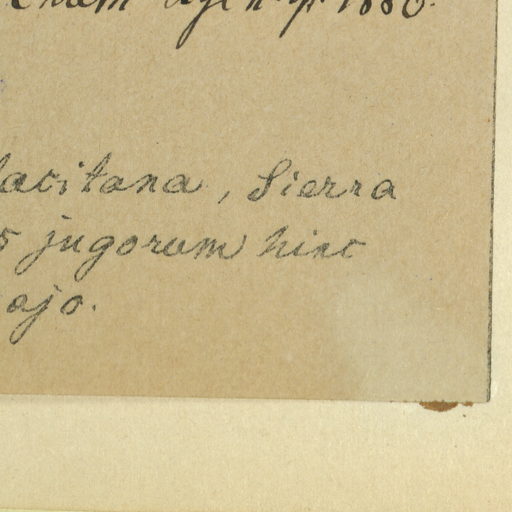 1880.
lacitana, Sierra
5 jugorum hinc
ojo.